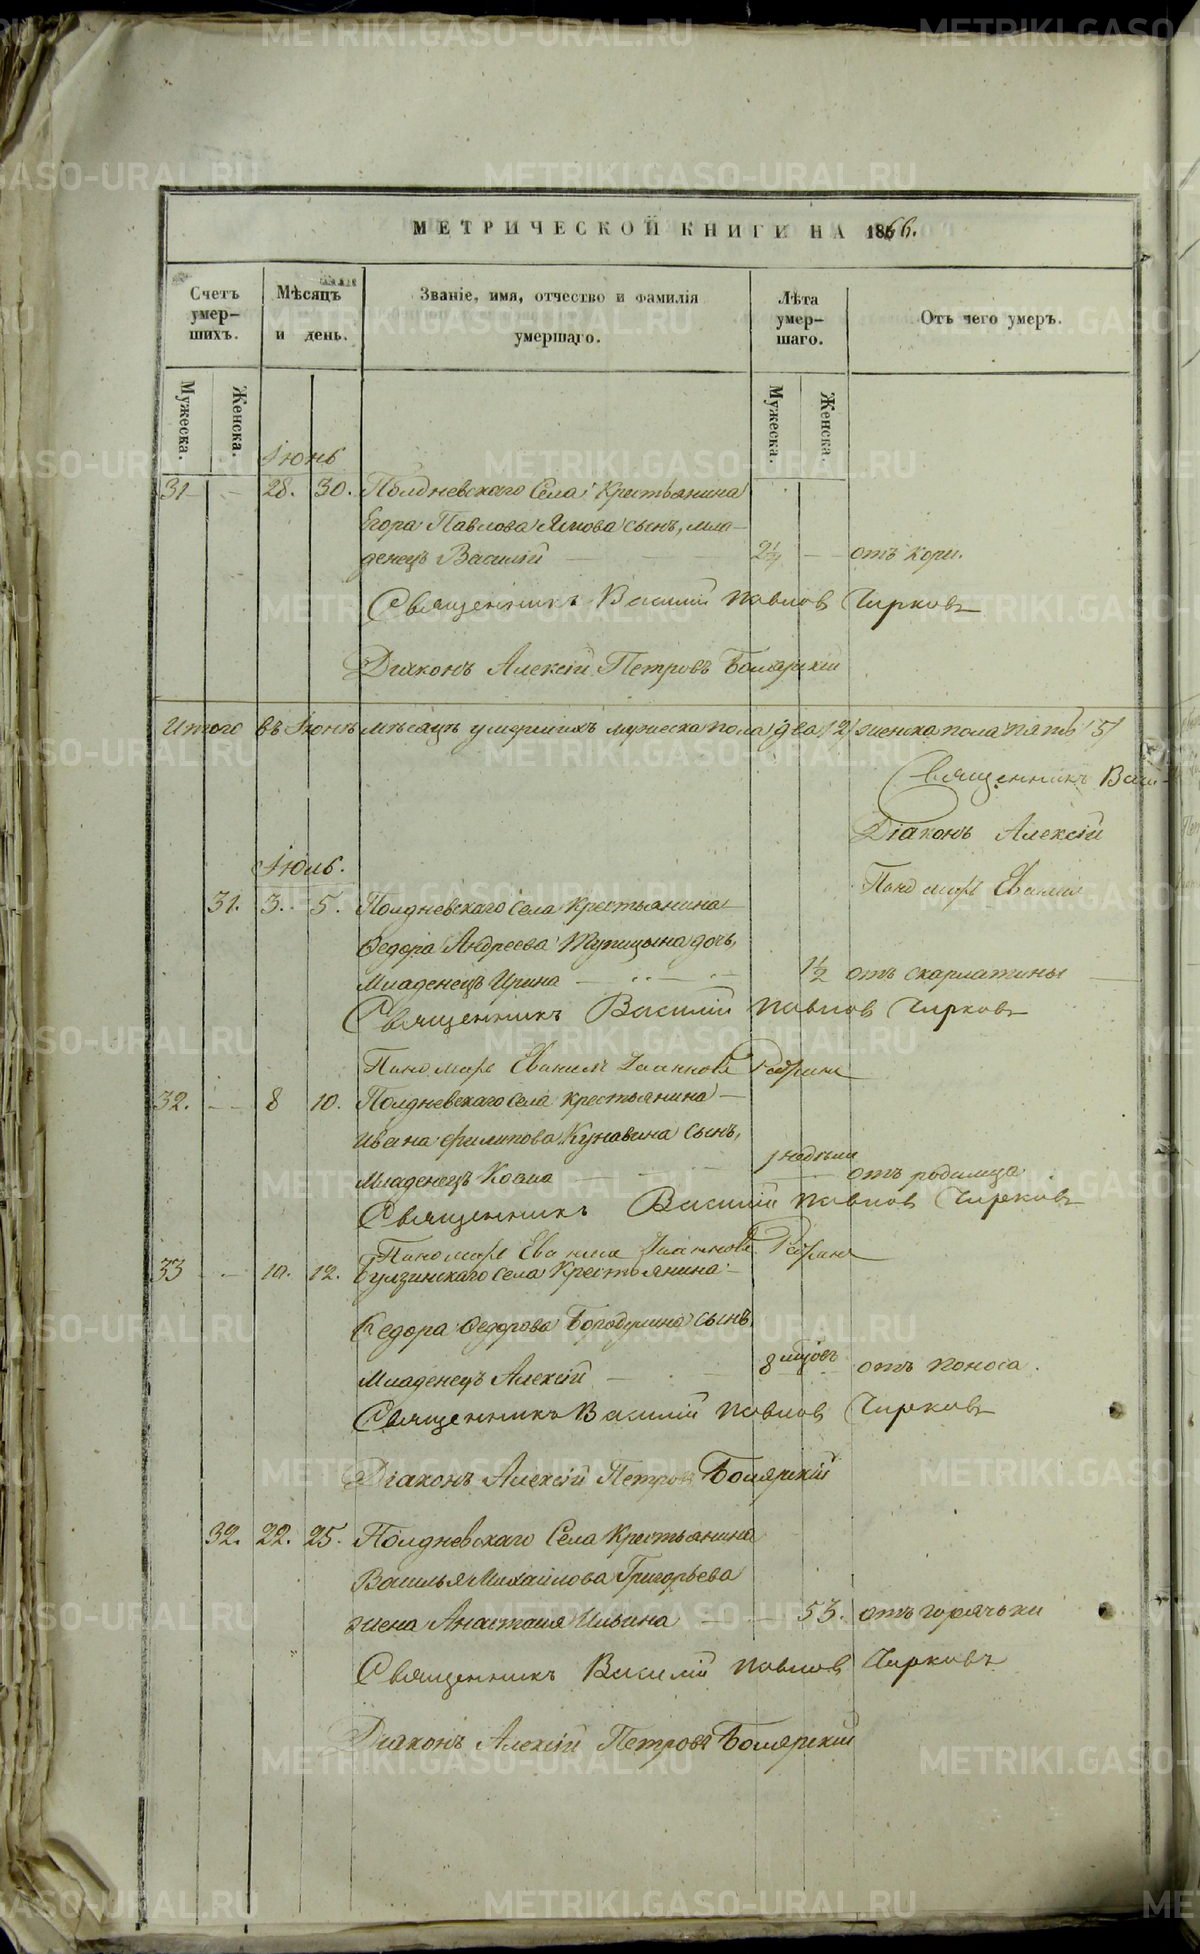 МЕТРИЧЕСКОЙ КНИГИ НА 1866.
Счетъ умер-шихъ.
Мѣсяцъ и день.
Званіе, имя, отчество и фамилія умершаго.
Лѣта умер-шаго.
Отъ чего умеръ.
Мужеска. Женска. Мужеска. Женска.
Іюнь
31 — — 28. 30. Полдневскаго Села Крестьянина
Егора Павлова сынъ, мла-
денецъ Василій — 2½ — отъ кори.
Священникъ Василий Павлов Чирковъ
Діаконъ Алексій Петровъ Болярскій
Итого въ Іюнѣ мѣсяцѣ умершихъ мужеска пола два /2/ женска пола пять /5/
Священникъ Васи-
Діаконъ Алексій
Пономарь
Іюль.
31. 3. 5. Полдневскаго Села Крестьянина
Ѳедора Андреева дочь,
Младенецъ Ирина — 1½ отъ скарлатины
Священникъ Василій Павлов Чирковъ
Пономарь
32. — — 8 10. Полдневскаго Села Крестьянина
Ивана Филипова Кунавина сынъ,
1 недѣли
Младенецъ Косма — отъ родимца
Священникъ Василій Павлов Чирковъ
Пономарь
33 — 10. 12. Булзинскаго Села Крестьянина
Ѳедора Ѳедорова Бородулина сынъ
Младенецъ Алексій — 8 мцовъ отъ поноса.
Священникъ Василій Павлов Чирковъ
Діаконъ Алексій Петров Болярскій
32. 22. 25. Полдневскаго Села Крестьянина
Василья Михайлова Григорьева
жена Анастасія Ильина — 53. отъ горячьки
Священникъ Василій Павлов Чирковъ
Діаконъ Алексій Петровъ Болярскій
METRIKI.GASO-URAL.RU